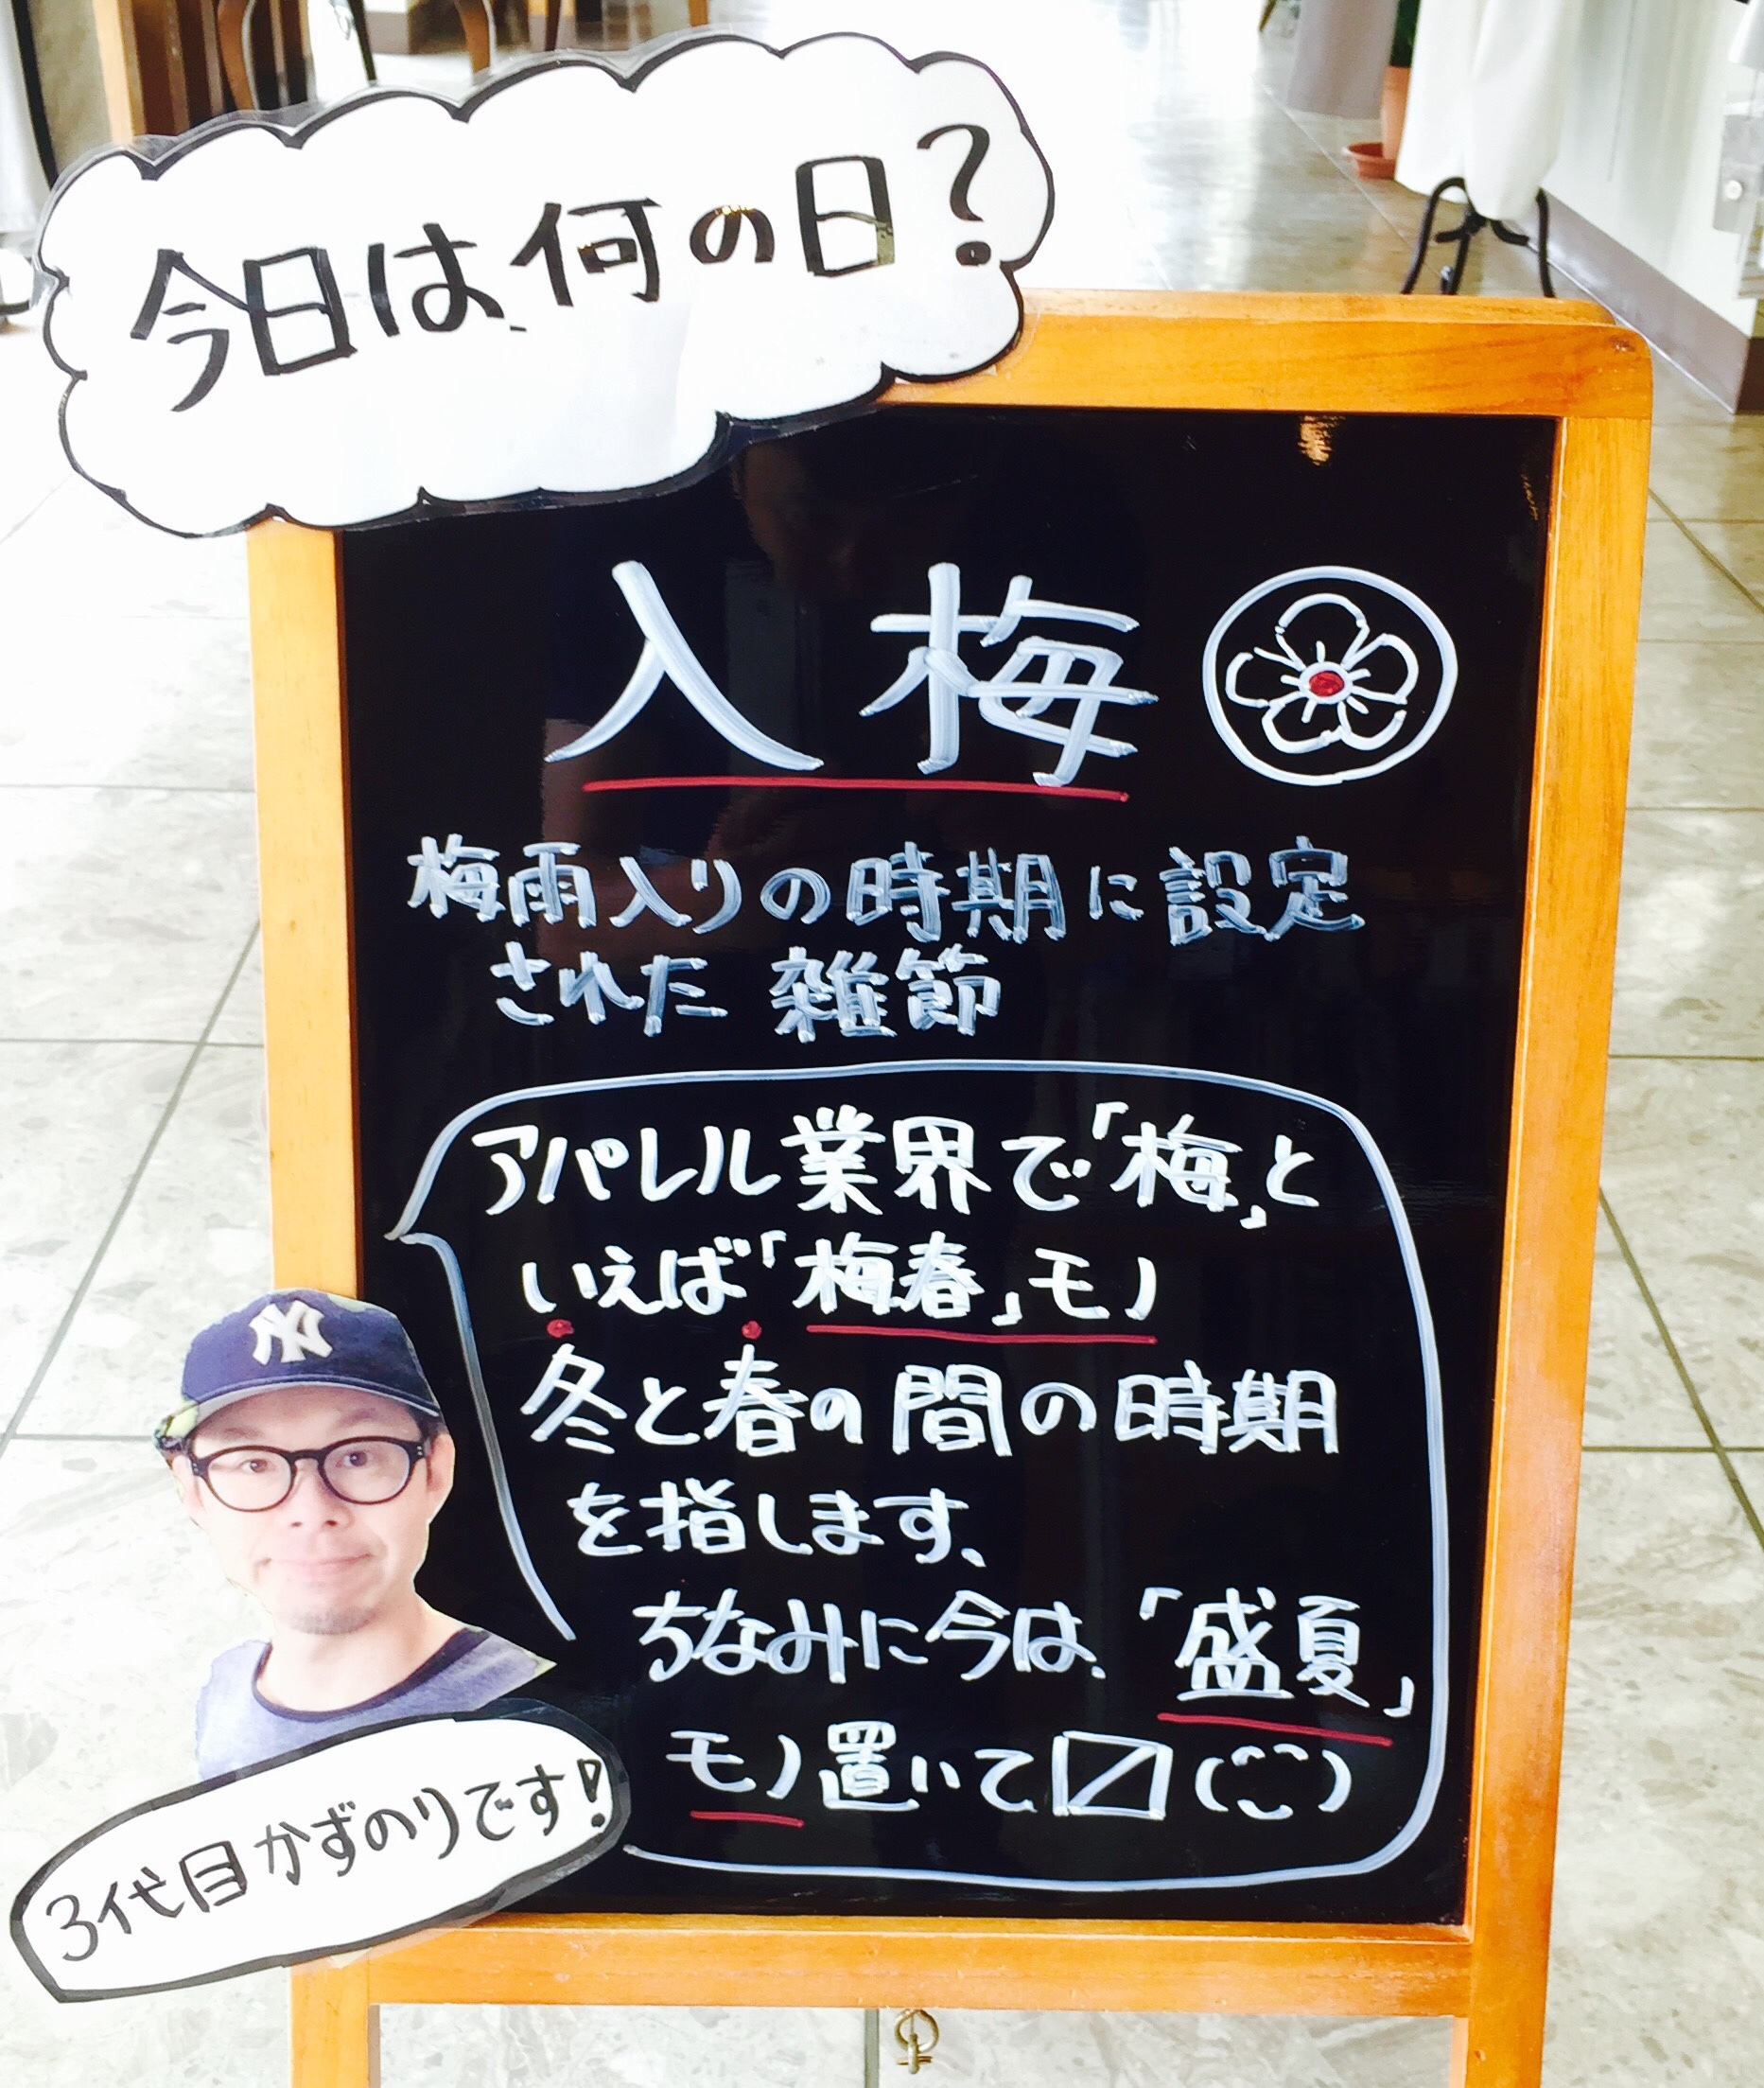 今日は何の日?
入梅
梅雨入りの時期に設定
された 雑節
アパレル業界で「梅」と
いえば「梅春」モノ
冬と春の間の時期
を指します、
ちなみに今は、「盛夏」
モノ置いて〼(¨)
NY
3代目かずのりです!